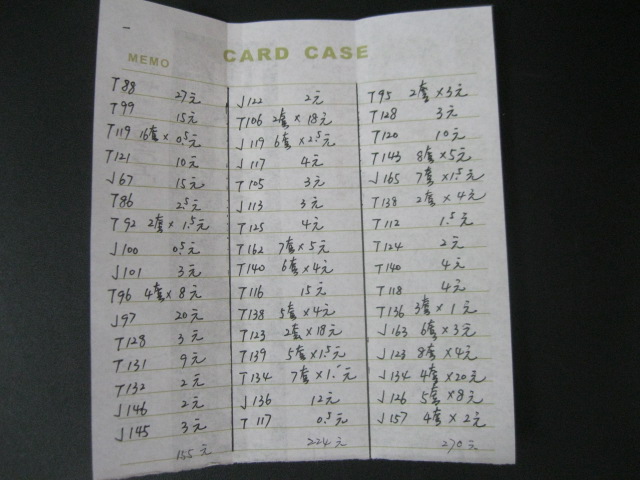 CARD CASE
MEMO
T88 27元
T99 15元
T119 16套×0.5元
T121 10元
J67 15元
T86 2.5元
T92 2套×1.5元
J100 0.5元
J101 3元
T96 4套×8元
J97 20元
T128 3元
T131 9元
T132 2元
J146 2元
J145 3元
155元
J122 2元
T106 2套×18元
J119 6套×2.5元
J117 4元
T105 3元
J113 3元
T125 4元
T162 7套×5元
T140 6套×4元
T116 15元
T138 5套×4元
T123 2套×18元
T139 5套×1.5元
T134 7套×1.
J136 12元
T117 0.5元
224元
T95 2套×3元
T128 3元
T120 10元
T143 8套×5元
J165 7套×1.5元
T138 2套×4元
T112 1.5元
T124 2元
T140 4元
T118 4元
T136 3套×1元
J163 6套×3元
J123 8套×4元
J134 4套×20元
J126 5套×8元
J157 4套×2元
270元